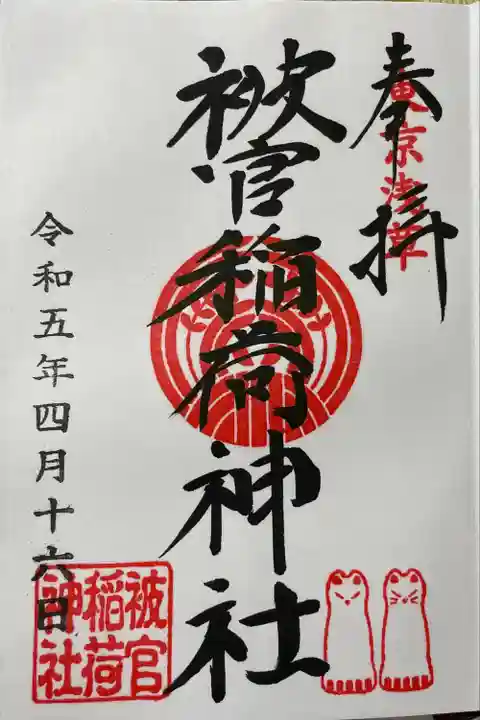 奉拝
東京浅草
被官稲荷神社
令和五年四月十六日
被官
稲荷
神社